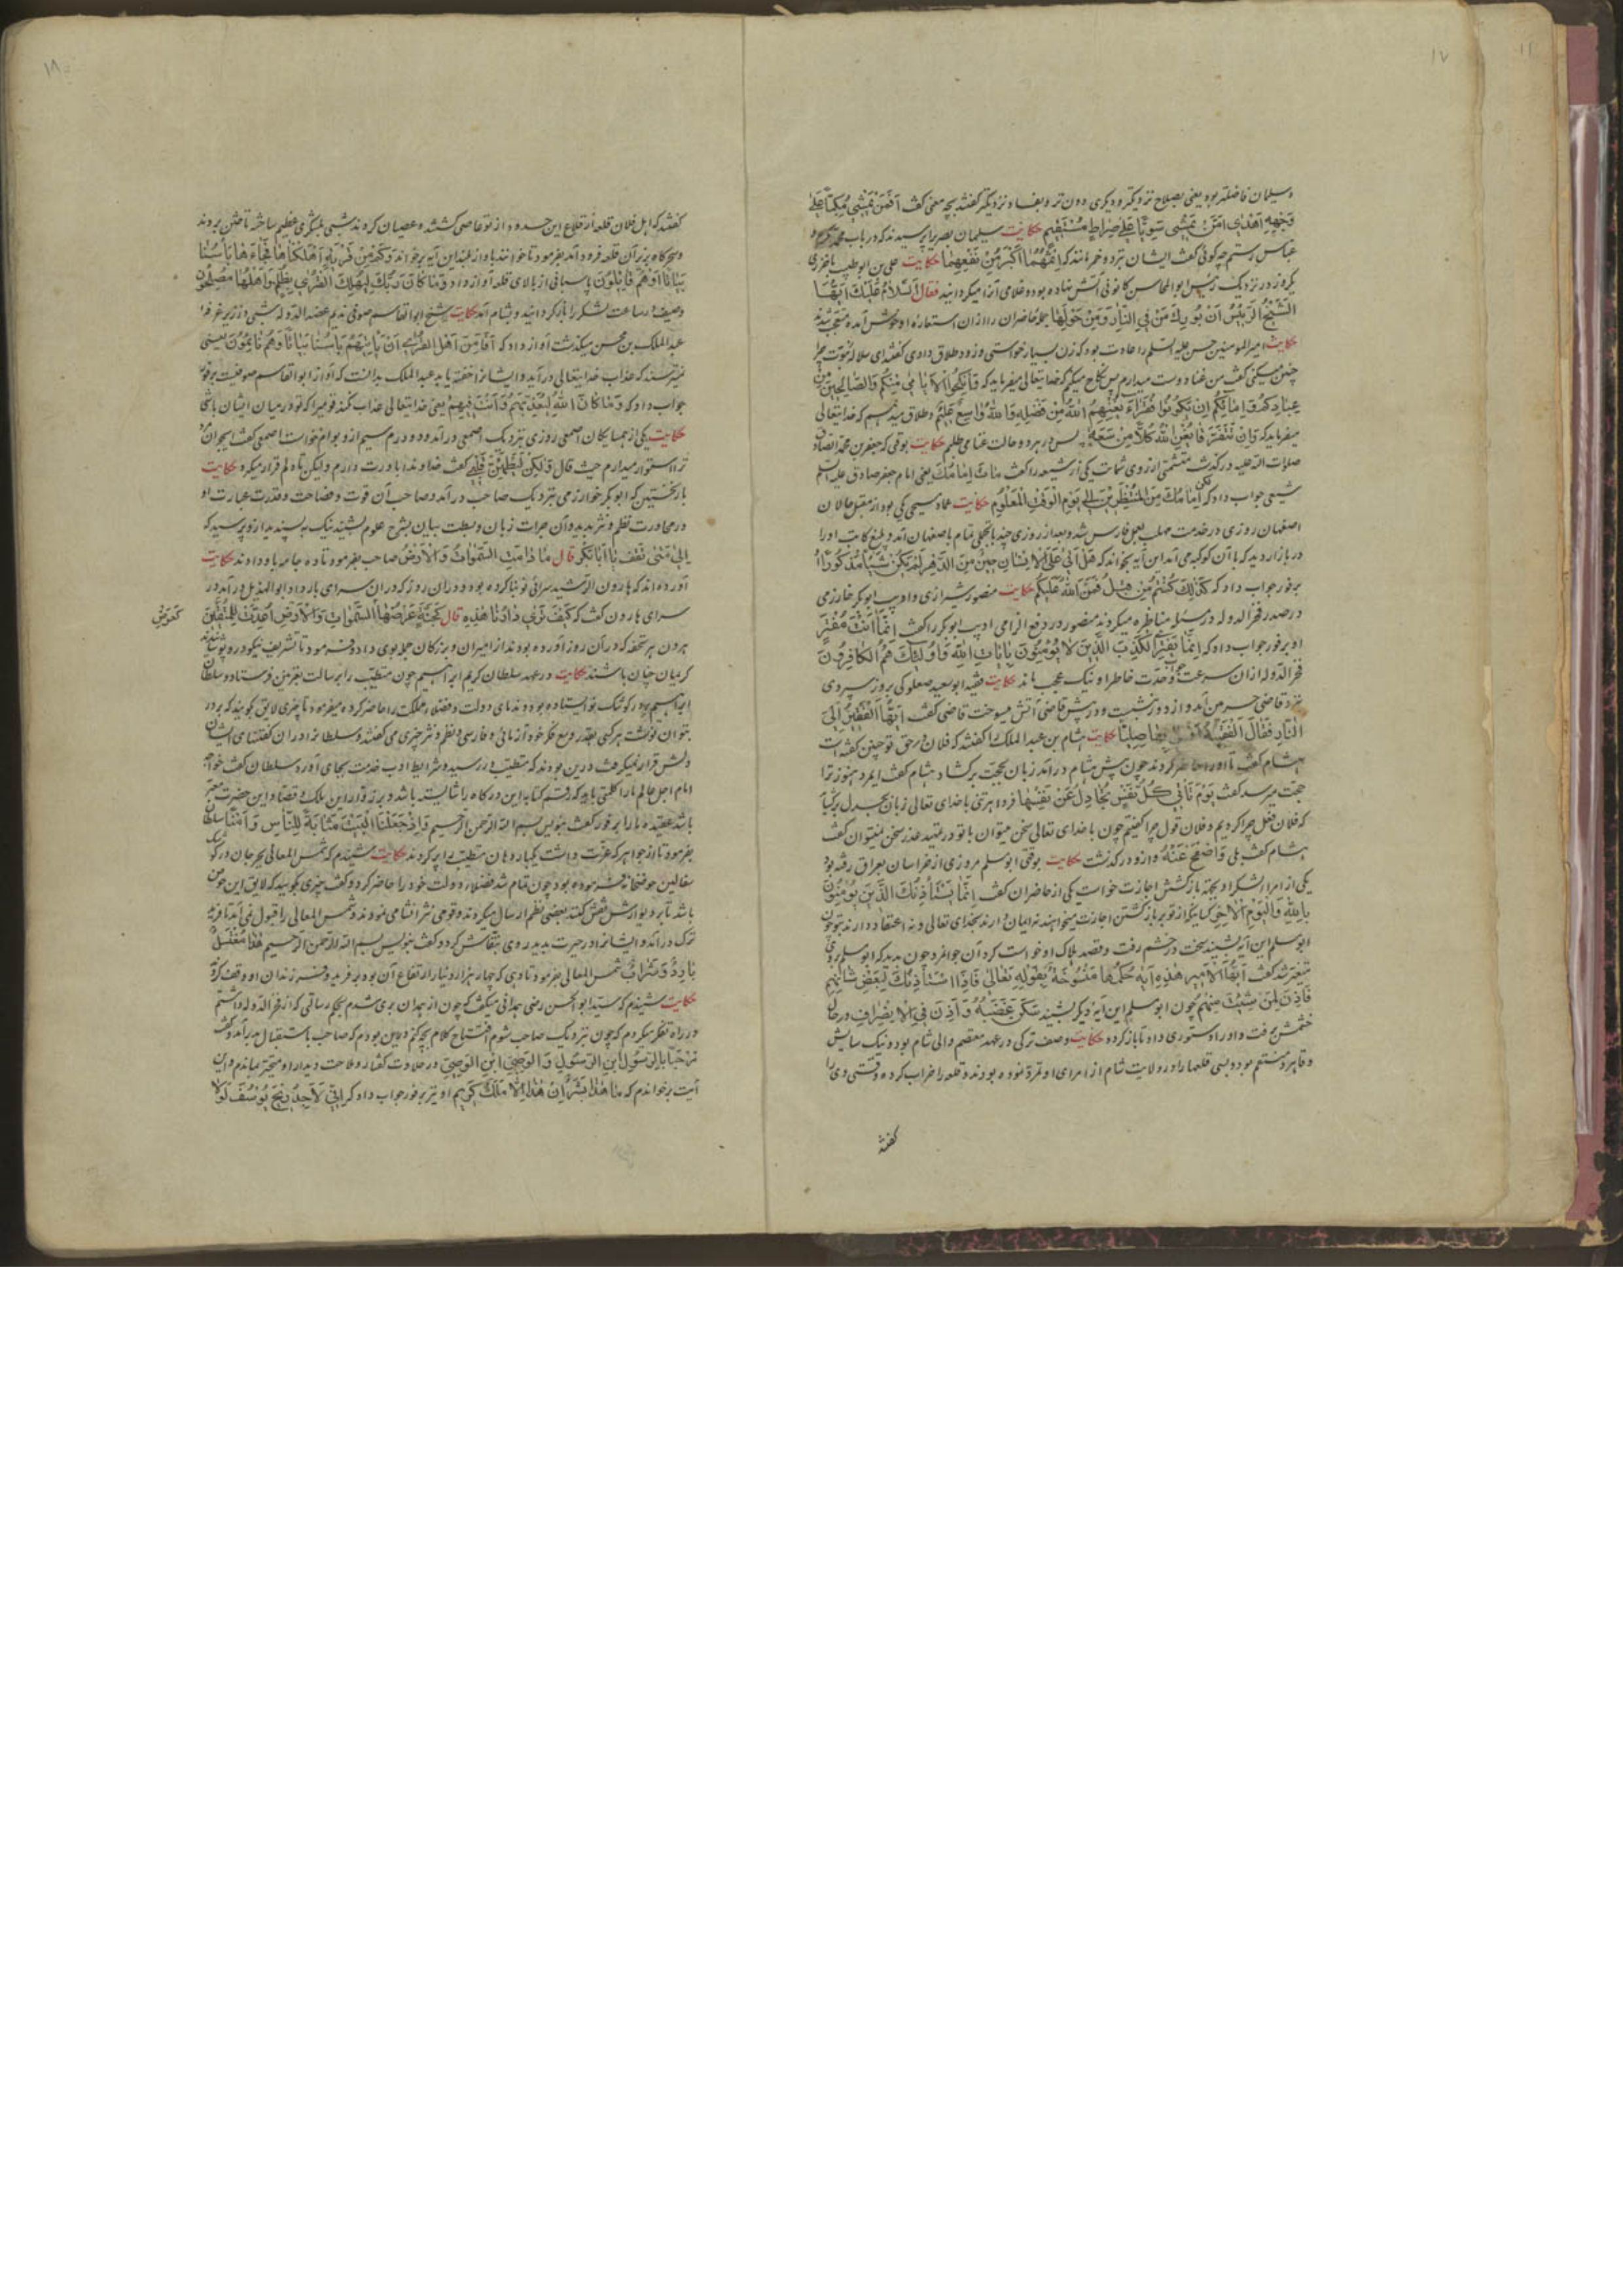 ۱۷
وسلیمان فاضلتر بود یعنی بصلاح نزدیکتر و دیگری دون تر و بفساد نزدیکتر گفتند بچه معنی گفت اَفَمَنْ یَمْشِی مُکِبّاً عَلی
وَجْهِهِ اَهْدی اَمَّنْ یَمْشِی سَوِیّاً عَلی صِراطٍ مُسْتَقِیمٍ حکایت سلیمان بصری را پرسیدند که در باب
عباس رستم چه گوئی گفت ایشان نرد و خمر مانند که اِثْمُهُما اَکْبَرُ مِنْ نَفْعِهِما حکایت علی بن ابو طیب باخرزی
یکروز در نزدیک رئیس ابو المحاسن کانونی آتش نهاده بود و غلامی آنرا میگردانید فقال السَّلامُ عَلَیْکَ اَیُّهَا
الشَّیْخُ الرَّئِیسُ اَنْ بُورِکَ مَنْ فِی النّارِ وَمَنْ حَوْلَها جمله حاضران را از ان استعاره او خوش آمده متعجب شدند
حکایت امیر المومنین حسن علیه السلم را عادت بود که زن بسیار خواستی و زود طلاق دادی گفتند ای سلاله نبوت چرا
چنین میکنی گفت من غنا دوست میدارم پس نکاح میکنم که خدایتعالی میفرماید که وَاَنْکِحُوا الْاَیامی مِنْکُمْ وَالصّالِحِینَ مِنْ
عِبادِکُمْ وَاِمائِکُمْ اِنْ یَکُونُوا فُقَراءَ یُغْنِهِمُ اللّهُ مِنْ فَضْلِهِ وَاللّهُ واسِعٌ عَلِیمٌ و طلاق میدهم که خدایتعالی
میفرماید که وَاِنْ یَتَفَرَّقا یُغْنِ اللّهُ کُلّاً مِنْ سَعَتِهِ پس در هر دو حالت غنا می طلبم حکایت بوقتی که جعفر بن محمد الصادق
صلوات الله علیه در گذشت متشمتی از روی شماتت یکی از شیعه را گفت مات اِمامُکَ یعنی امام جعفر صادق علیه السلم
شیعی جواب داد که لکن اِمامُکَ مِنَ الْمُنْظَرِینَ اِلی یَوْمِ الْوَقْتِ الْمَعْلُومِ حکایت عماد سیمی یکی بود از مقبل حالان
اصفهان روزی در خدمت مهلب بعمل فارس شد و بعد از روزی چند با تجملی تمام باصفهان آمد و بلیغ کاتب او را
در بازار دید که با آن کوکبه می آمد این آیه بخواند که هَلْ اَتی عَلَی الْاِنْسانِ حِینٌ مِنَ الدَّهْرِ لَمْ یَکُنْ شَیْئاً مَذْکُوراً او
برفور جواب داد که کَذلِکَ کُنْتُمْ مِنْ قَبْلُ فَمَنَّ اللّهُ عَلَیْکُمْ حکایت منصور شیرازی و ادیب ابو بکر خارزمی
در صدر فخر الدوله در مسئله مناظره میکردند منصور در دفع الزامی ادیب ابو بکر را گفت اِنَّما اَنْتَ مُفْتَرٍ
او برفور جواب داد که اِنَّما یَفْتَرِی الْکَذِبَ الَّذِینَ لا یُؤْمِنُونَ بِآیاتِ اللّهِ وَاُولئِکَ هُمُ الْکافِرُونَ
فخر الدوله از ان سرعت جواب و حدّت خاطر او نیک عجب ماند حکایت فقیه ابو سعید صعلوکی بروز سردی
نزد قاضی حرمن آمد و از دور نشست و در پیش قاضی آتش میسوخت قاضی گفت اَیُّهَا الْفَقِیهُ اِلَی
النّارِ فَقالَ الْفَقِیهُ بِها صِلِیّا حکایت هشام بن عبد الملک را گفتند که فلان در حق تو چنین گفته است
هشام گفت تا او را حاضر کردند چون پیش هشام در آمد زبان بحجت برگشاد هشام گفت ایمرد هنوز ترا
حجت میرسد گفت یَوْمَ تَأْتِی کُلُّ نَفْسٍ تُجادِلُ عَنْ نَفْسِها فردا برتری با خدای تعالی زبان بجدل برگشاید
که فلان فعل چرا کردیم و فلان قول چرا گفتیم چون با خدای تعالی سخن میتوان با تو در تمهید عذر سخن نمیتوان گفت
هشام گفت بلی وَاصْفَحْ عَنْهُ و ازو در گذشت حکایت بوقتی ابو مسلم مروزی از خراسان بعراق رفته بود
یکی از امراء لشکر او بجهة بازگشتن اجازت خواست یکی از حاضران گفت اِنَّما یَسْتَأْذِنُکَ الَّذِینَ یُؤْمِنُونَ
بِاللّهِ وَالْیَوْمِ الْآخِرِ کسانیکه از تو بر بازگشتن اجازت میخواهند نه ایمان دارند بخدای تعالی و نه اعتقاد دارند بتو چون
ابو مسلم این آیه بشنید سخت در خشم رفت و قصد هلاک او خواست کرد آن جوانمرد چون بدید که ابو مسلم بروی
متغیر شد گفت اَیُّهَا الْاَمِیرُ هذِهِ آیَةٌ حُکْمُها مَنْسُوخَةٌ بِقَوْلِهِ تَعالی فَاِذَا اسْتَأْذَنُوکَ لِبَعْضِ شَأْنِهِمْ
فَأْذَنْ لِمَنْ شِئْتَ مِنْهُمْ چون ابو مسلم این آیه دیگر بشنید سَکَنَ غَضَبُهُ وَاَذِنَ فِی الْاِنْصِرافِ در حال
خشمش برفت و او را دستوری داد تا باز گردد حکایت وصف ترکی در عهد معتصم والی شام بود و نیک سایس
و قاهر و منتقم بود و بسی قلعها را در ولایت شام از امرای او تمرد نموده بودند و قلعه را خراب کرده و قتی وی را
گفتند
۱۸
گفتند که اهل فلان قلعه از قلاع این حدود از تو عاصی گشتند و عصیان کردند شبی لشکری عظیم ساخته تاختن بردند
و سحرگاه بر در آن قلعه فرود آمد بفرمود تا خواندند باواز بلند این آیه بر خواند وَکَمْ مِنْ قَرْیَةٍ اَهْلَکْناها فَجاءَها بَأْسُنا
بَیاتاً اَوْ هُمْ قائِلُونَ پاسبانی از بالای قلعه آواز داد وَما کانَ رَبُّکَ لِیُهْلِکَ الْقُری بِظُلْمٍ وَاَهْلُها مُصْلِحُونَ
وصیف در ساعت لشکر را باز گردانید و بشام آمد حکایت شیخ ابو القاسم صوفی ندیم عضد الدوله شبی در زیر غرفه
عبد الملک بن محسن میگذشت آواز داد که اَفَأَمِنَ اَهْلُ الْقُری اَنْ یَأْتِیَهُمْ بَأْسُنا بَیاتاً وَهُمْ نائِمُونَ یعنی
نمیترسند که عذاب خدایتعالی در آید و ایشانرا خفته یابد عبد الملک بدانست که آواز ابو القاسم صوفیست برفور
جواب داد که وَما کانَ اللّهُ لِیُعَذِّبَهُمْ وَاَنْتَ فِیهِمْ یعنی خدایتعالی عذاب نکند قومیرا که تو در میان ایشان باشی
حکایت یکی از همسایگان اصمعی روزی بنزدیک اصمعی در آمد و دو درم سیم از و بوام خواست اصمعی گفت
ترا استوار میدارم حیث قال وَلکِنْ لِیَطْمَئِنَّ قَلْبِی گفت خداوندا باورت دارم ولیکن تا دلم قرار میگیرد حکایت
بار نخستین که ابو بکر خوارزمی بنزدیک صاحب در آمد و صاحب آن قوت و فصاحت و قدرت عبارت او
در محاورت نظم و نثر بدید و آن جرات زبان و بسطت بیان بشرح علوم بشنید نیک پسندید ازو پرسید که
اِلی مَتی تَقِفُ یا اَبا بَکْرٍ قال ما دامَتِ السَّمواتُ وَالْاَرْضُ صاحب بفرمود تا ده جامه باو دادند حکایت
آورده اند که هارون الرشید سرائی نو بنا کرده بود و دران روز که دران سرای بار داد ابو الهذیل در آمد در
سرای هارون گفت که کَیْفَ تَری دارَنا هذِهِ قال کَجَنَّةٍ عَرْضُهَا السَّمواتُ وَالْاَرْضُ اُعِدَّتْ لِلْمُتَّقِینَ
کعرض
هرون هر تحفه که در آن روز آورده بودند از امیران و بزرگان جمله بوی داد و فرمود تا تشریف نیکو در و پوشیدند
کریمان چنان باشند حکایت در عهد سلطان کریم ابراهیم چون متطبّب را برسالت بغزنین فرستاد و سلطان
ابراهیم بر در کوشک نو ایستاده بود و ندمای دولت و فضلاء مملکت را حاضر کرده میفرمود تا چیزی لایق گویند که بر در
بتوان نوشت هر کسی بقدر وسع فکر خود آزمائی و فارسی و نظم و نثر چیزی می گفتند و سلطانرا دران گفتنهای ایشان
دلش قرار نمیگرفت درین بودند که متطبّب در رسید و شرایط ادب خدمت بجای آورد سلطان گفت خواجه
امام اجل عالم ما را کلمتی باید که رقم کتابه این درگاه را شایسته باشد و بر زوار این ملک و قصاد این حضرت معتبر
باشد عقیده ما را برفور گفت بنویس بسم الله الرحمن الرحیم وَاِذْ جَعَلْنَا الْبَیْتَ مَثابَةً لِلنّاسِ وَاَمْناً سلطان
بفرمود تا از جواهر که عزّت داشت یکبار دهان متطبّب پر کردند حکایت شنیدم که شمس المعالی بجرجان در کوشک
سفالین حوضخانه فرموده بود چون تمام شد فضلاء دولت خود را حاضر کرد و گفت چیزی بگویید که لایق این حوض
باشد تا بر دیوارش نقش کنند بعضی نظم ارسال میکردند و قومی نثر انشا می نمودند و شمس المعالی را قبول نمی آید تا فریه
ترک در آمد و ایشانرا در حیرت بدید روی بنقاش کرد و گفت بنویس بسم الله الرحمن الرحیم هذا مُغْتَسَلٌ
بارِدٌ وَشَرابٌ شمس المعالی بفرمود تا دهی که چهار هزار دینار ارتفاع آن بود بر فریه و فرزندان او وقف کرد
حکایت شنیدم که سید ابو الحسن رضی همدانی میگفت که چون از همدان بری شدم بحکم رسالتی که از فخر الدوله داشتم
در راه تفکر میکردم که چون بنزدیک صاحب شوم افتتاح کلام بچه کنم در این بودم که صاحب باستقبال من برآمد و گفت
مَرْحَباً بِالرَّسُولِ ابْنِ الرَّسُولِ وَالْوَصِیِّ ابْنِ الْوَصِیِّ در حلاوت گفتار و ملاحت دیدار او متحیر بماندم و این
آیت بر خواندم که ما هذا بَشَراً اِنْ هذا اِلّا مَلَکٌ کَرِیمٌ او نیز برفور جواب داد که اِنِّی لَاَجِدُ رِیحَ یُوسُفَ لَوْلا